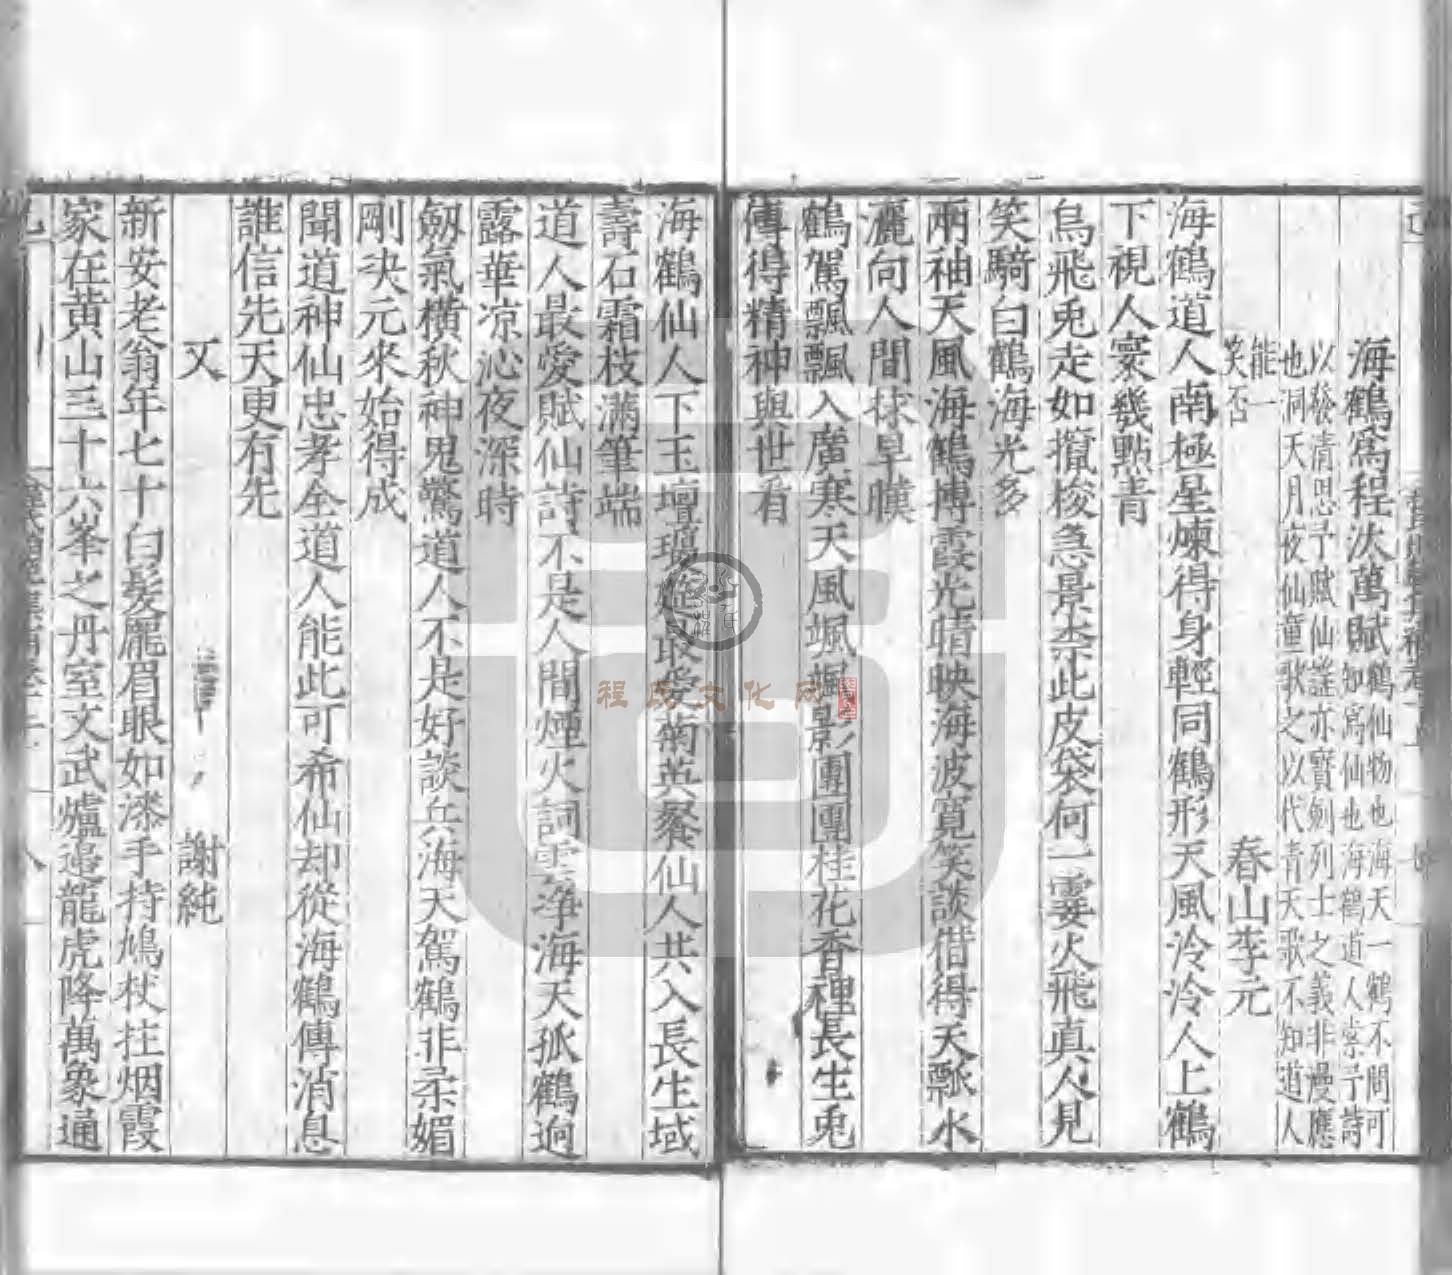 海鶴為程汰萬賦鶴仙物也海天一鶴不間可
如寫仙也海鶴道人索予詩
以發清思予賦仙謡亦寳劍列士之義非漫應
也洞天月夜仙童歌之以代青天歌不知道人
能一
笑否
春山李元
海鶴道人南極星煉得身輕同鶴形天風泠泠人上鶴
下視人寰幾點青
烏飛兎走如攛梭急景柰此皮袋何一霎火飛真人見
笑騎白鶴海光多
兩袖天風海鶴博霞光晴映海波寛笑談借得天瓢水
灑向人間抹旱暵
鶴駕飄飄入廣寒天風颯颯影團團桂花香裡長生兎
傳得精神與世看
海鶴仙人下玉壇瑤姬最愛菊英餐仙人共入長生域
壽石霜枝滿筆端
道人最愛賦仙詩不是人間煙火詞雲淨海天孤鶴逈
露華凉沁夜深時
劔氣橫秋神鬼驚道人不是好談兵海天駕鶴非柔媚
剛决元來始得成
聞道神仙忠孝全道人能此可希仙却從海鶴傳消息
誰信先天更有先
又
謝純
新安老翁年七十白髮龐眉眼如漆手持鳩杖拄烟霞
家在黄山三十六峯之丹室文武爐邉龍虎降萬象通
程氏文化网